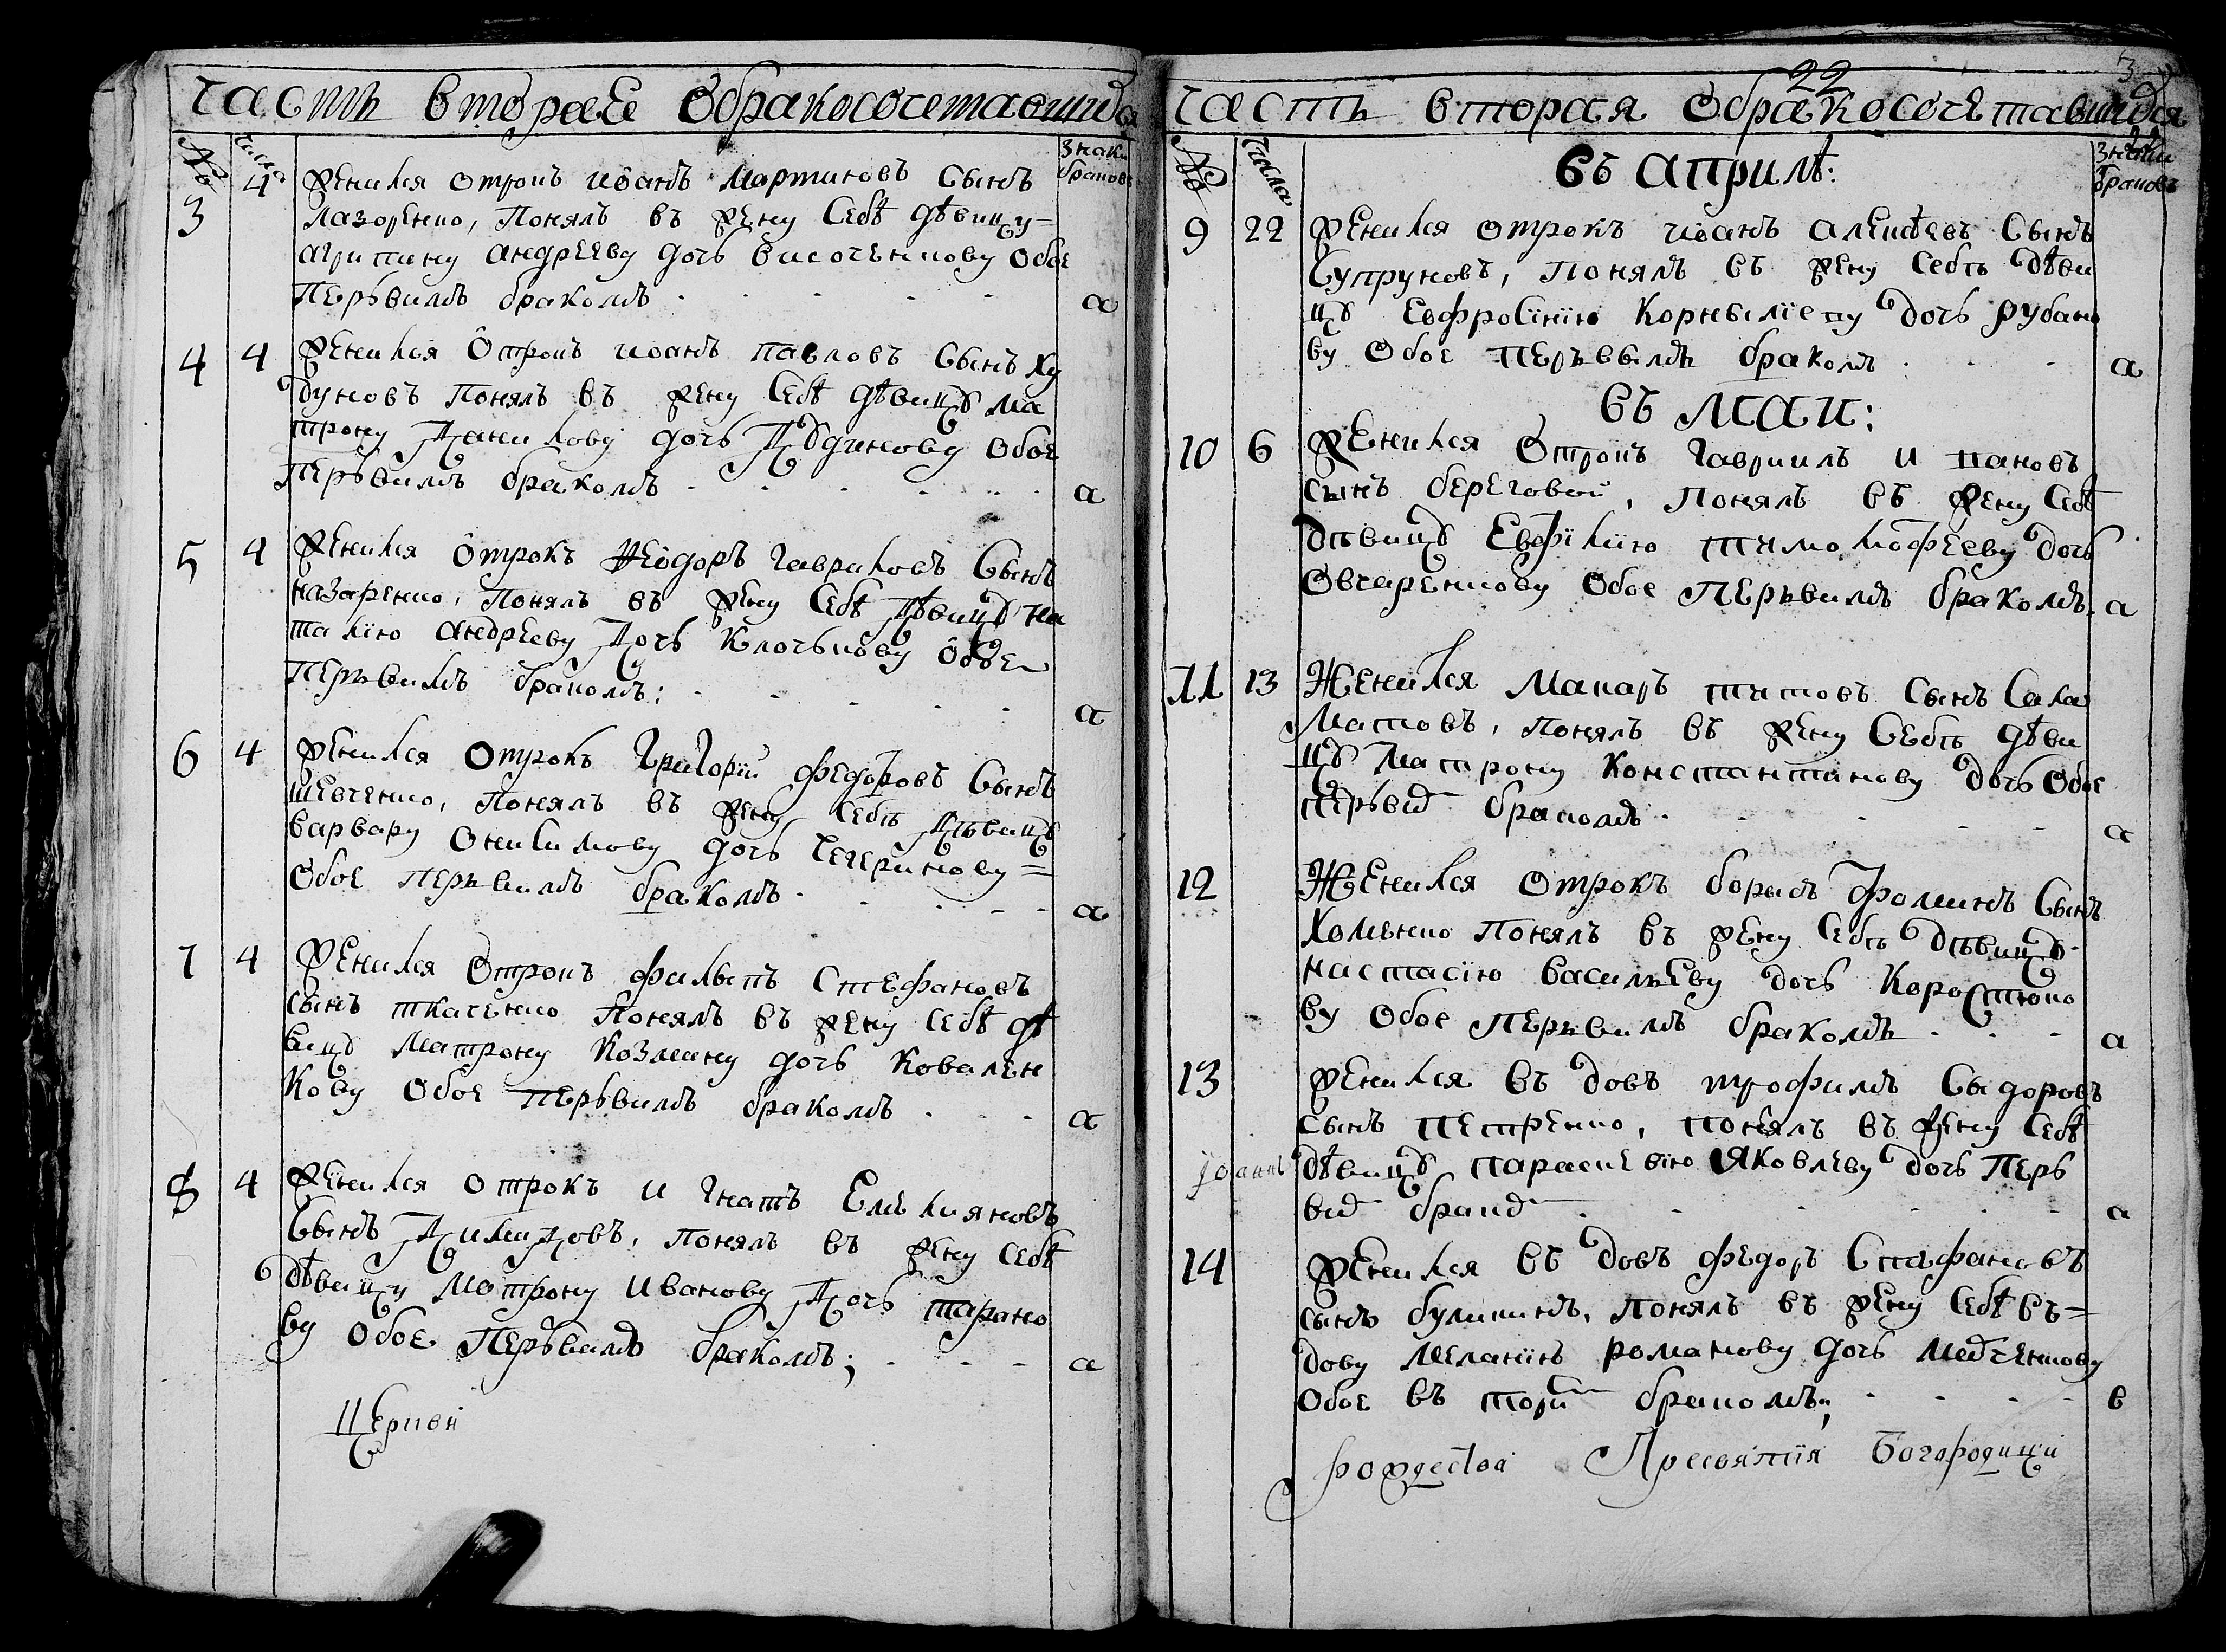 Часть вторая ѡбракосочетавшихся
№ числа знаки браковъ
3 4 Женился отрокъ иѡанъ Мартиновъ Сынъ
Лазоренко, Понялъ въ жену Себѣ дѣвицу
агрипину андрееву дочь височенкову обое
Первимъ бракомъ а
4 4 Женился отрокъ иѡанъ павловъ Сынъ Ку
думовъ Понялъ въ жену Себѣ дѣвицу ма
трону Данилову дочь обое
первимъ бракомъ а
5 4 Женился отрокъ Ѳеодоръ гавриловъ Сынъ
назаренко, Понялъ въ жену Себѣ дѣвицу на
талїю андрееву дочь Клочькову обое
первимъ бракомъ: а
6 4 Женился отрокъ григорїй федоровъ Сынъ
шевченко, Понялъ въ жену Себѣ дѣвицу
варвару Онисимову дочь Чечеринову
обое первимъ бракомъ а
7 4 Женился отрокъ филипъ Стефановъ
сынъ ткаченко Понялъ въ жену Себѣ дѣ
вицу Матрону Козмину дочь Ковален
кову обое первимъ бракомъ а
8 4 Женился отрокъ игнатъ Емелияновъ
Сынъ Понялъ въ жену Себѣ
дѣвицу Матрону Иванову дочь тарано
ву обое Первимъ бракомъ; а
Церкви
22 3
Часть вторая ѡбракосочетавшихся
№ числа знаки браковъ
въ априлѣ:
9 22 Женился отрокъ иѡанъ алеѯѣевъ Сынъ
Супруновъ, Понялъ въ жену Себѣ дѣви
цу Евфросїнїю Корнилїеву дочь рубано
ву обое первымъ бракомъ а
въ маи:
10 6 Женился отрокъ гавриилъ ивановъ
сынъ береговой, Понялъ въ жену Себѣ
дѣвицу Евфимїю тимофееву дочь
овчаренкову обое первимъ бракомъ. а
11 13 Женился Макаръ титовъ Сынъ Сала
матовъ, Понялъ въ жену Себѣ дѣви
цу Матрону Константинову дочь обое
первимъ бракомъ а
12 Женился отрокъ борисъ фоминъ Сынъ
Хоменко Понялъ въ жену Себѣ дѣвицу
настасїю василеву дочь Коростюко
ву обое первимъ бракомъ а
13 Женился въдовъ трофимъ Сыдоровъ
сынъ Петренко, Понялъ въ жену Себѣ
Іоаннъ дѣвицу параскевїю Яковлеву дочь Пер
вимъ бракомъ а
14 Женился въдовъ федоръ Стефановъ
сынъ булкинъ, Понялъ въ жену Себѣ въ
дову Меланїю романову дочь
обое вътори бракомъ: в
рождества Пресвятїя Богородици